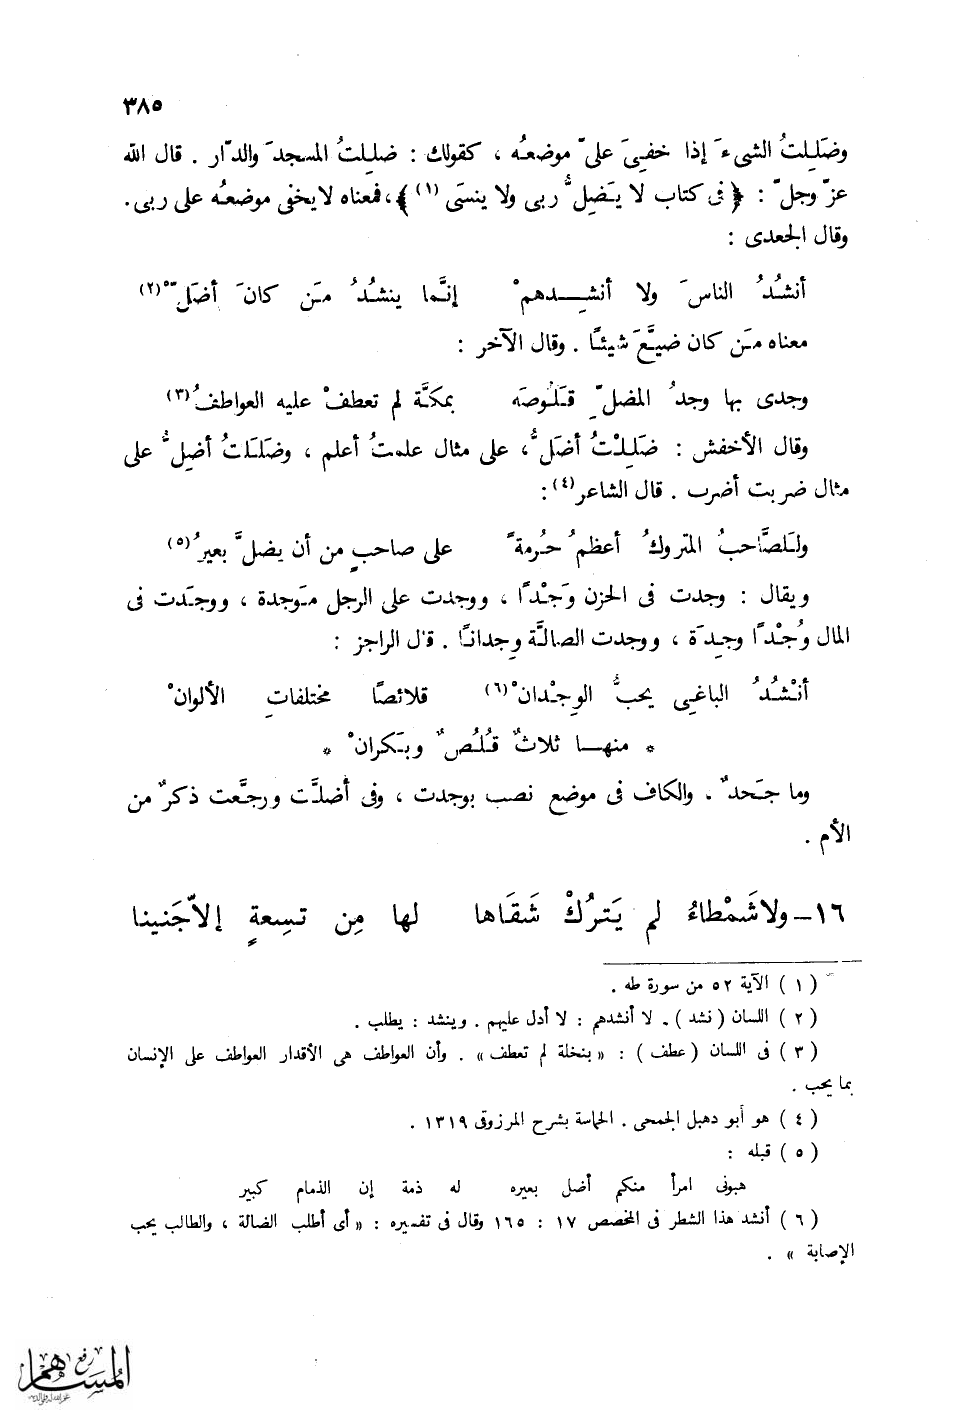 ٣٨٥
وضَلِلتُ الشىءَ إذا خفىَ علىّ موضعُه ، كقولك : ضلِلتُ المسجدَ والدّار . قال الله
عزّ وجلّ : ﴿ فى كتاب لا يَضِلُّ ربى ولا ينسَى (١) ﴾، فمعناه لا يخفى موضعُه على ربى.
وقال الجعدى :
أنشُدُ الناسَ ولا أنشِدهمْ إنَّما ينشُدُ مَن كانَ أضَلّْ (٢)
معناه مَن كان ضيَّعَ شيئًا . وقال الآخر :
وجدى بها وجدُ المضلِّ قَلُوصَه بمكَّة لم تعطفْ عليه العواطفُ (٣)
وقال الأخفش : ضَلِلْتُ أضَلُّ ، على مثال علمتُ أعلم ، وضَلَلتُ أضِلُّ على
مثال ضربت أضرب . قال الشاعر (٤) :
ولَلصَّاحبُ المتروكُ أعظمُ حُرمةً على صاحبٍ من أن يضلَّ بعيرُ (٥)
ويقال : وجدت فى الحزن وَجْدًا ، ووجدت على الرجل مَوجدة ، ووجَدت فى
المال وُجْدًا وجِدَة ، ووجدت الضالَّة وِجدانًا . قال الراجز :
أنْشُدُ الباغِى يحبُّ الوِجْدانْ (٦) قلائصًا مختلفاتِ الألوانْ
* منهــا ثلاثٌ قُلُصٌ وبَكرانْ *
وما جَحدٌ . والكاف فى موضع نصب بوجدت ، وفى أضلَّت ورجَّعت ذكرٌ من
الأم .
١٦ – ولا شَمْطاءُ لم يَترُكْ شَقَاها لها مِن تسِعةٍ إلاّ جَنينا
( ١ ) الآية ٥٢ من سورة طه .
( ٢ ) اللسان ( نشد ) . لا أنشدهم : لا أدل عليهم . وينشد : يطلب .
( ٣ ) فى اللسان ( عطف ) : « بنخلة لم تعطف » . وأن العواطف هى الأقدار العواطف على الإنسان
بما يحب .
( ٤ ) هو أبو دهبل الجمحى . الحماسة بشرح المرزوقى ١٣١٩ .
( ٥ ) قبله :
هبونى امرأ منكم أضل بعيره له ذمة إن الذمام كبير
( ٦ ) أنشد هذا الشطر فى المخصص ١٧ : ١٦٥ وقال فى تفسيره : « أى أطلب الضالة ، والطالب يحب
الإصابة » .
رفع
المساهم